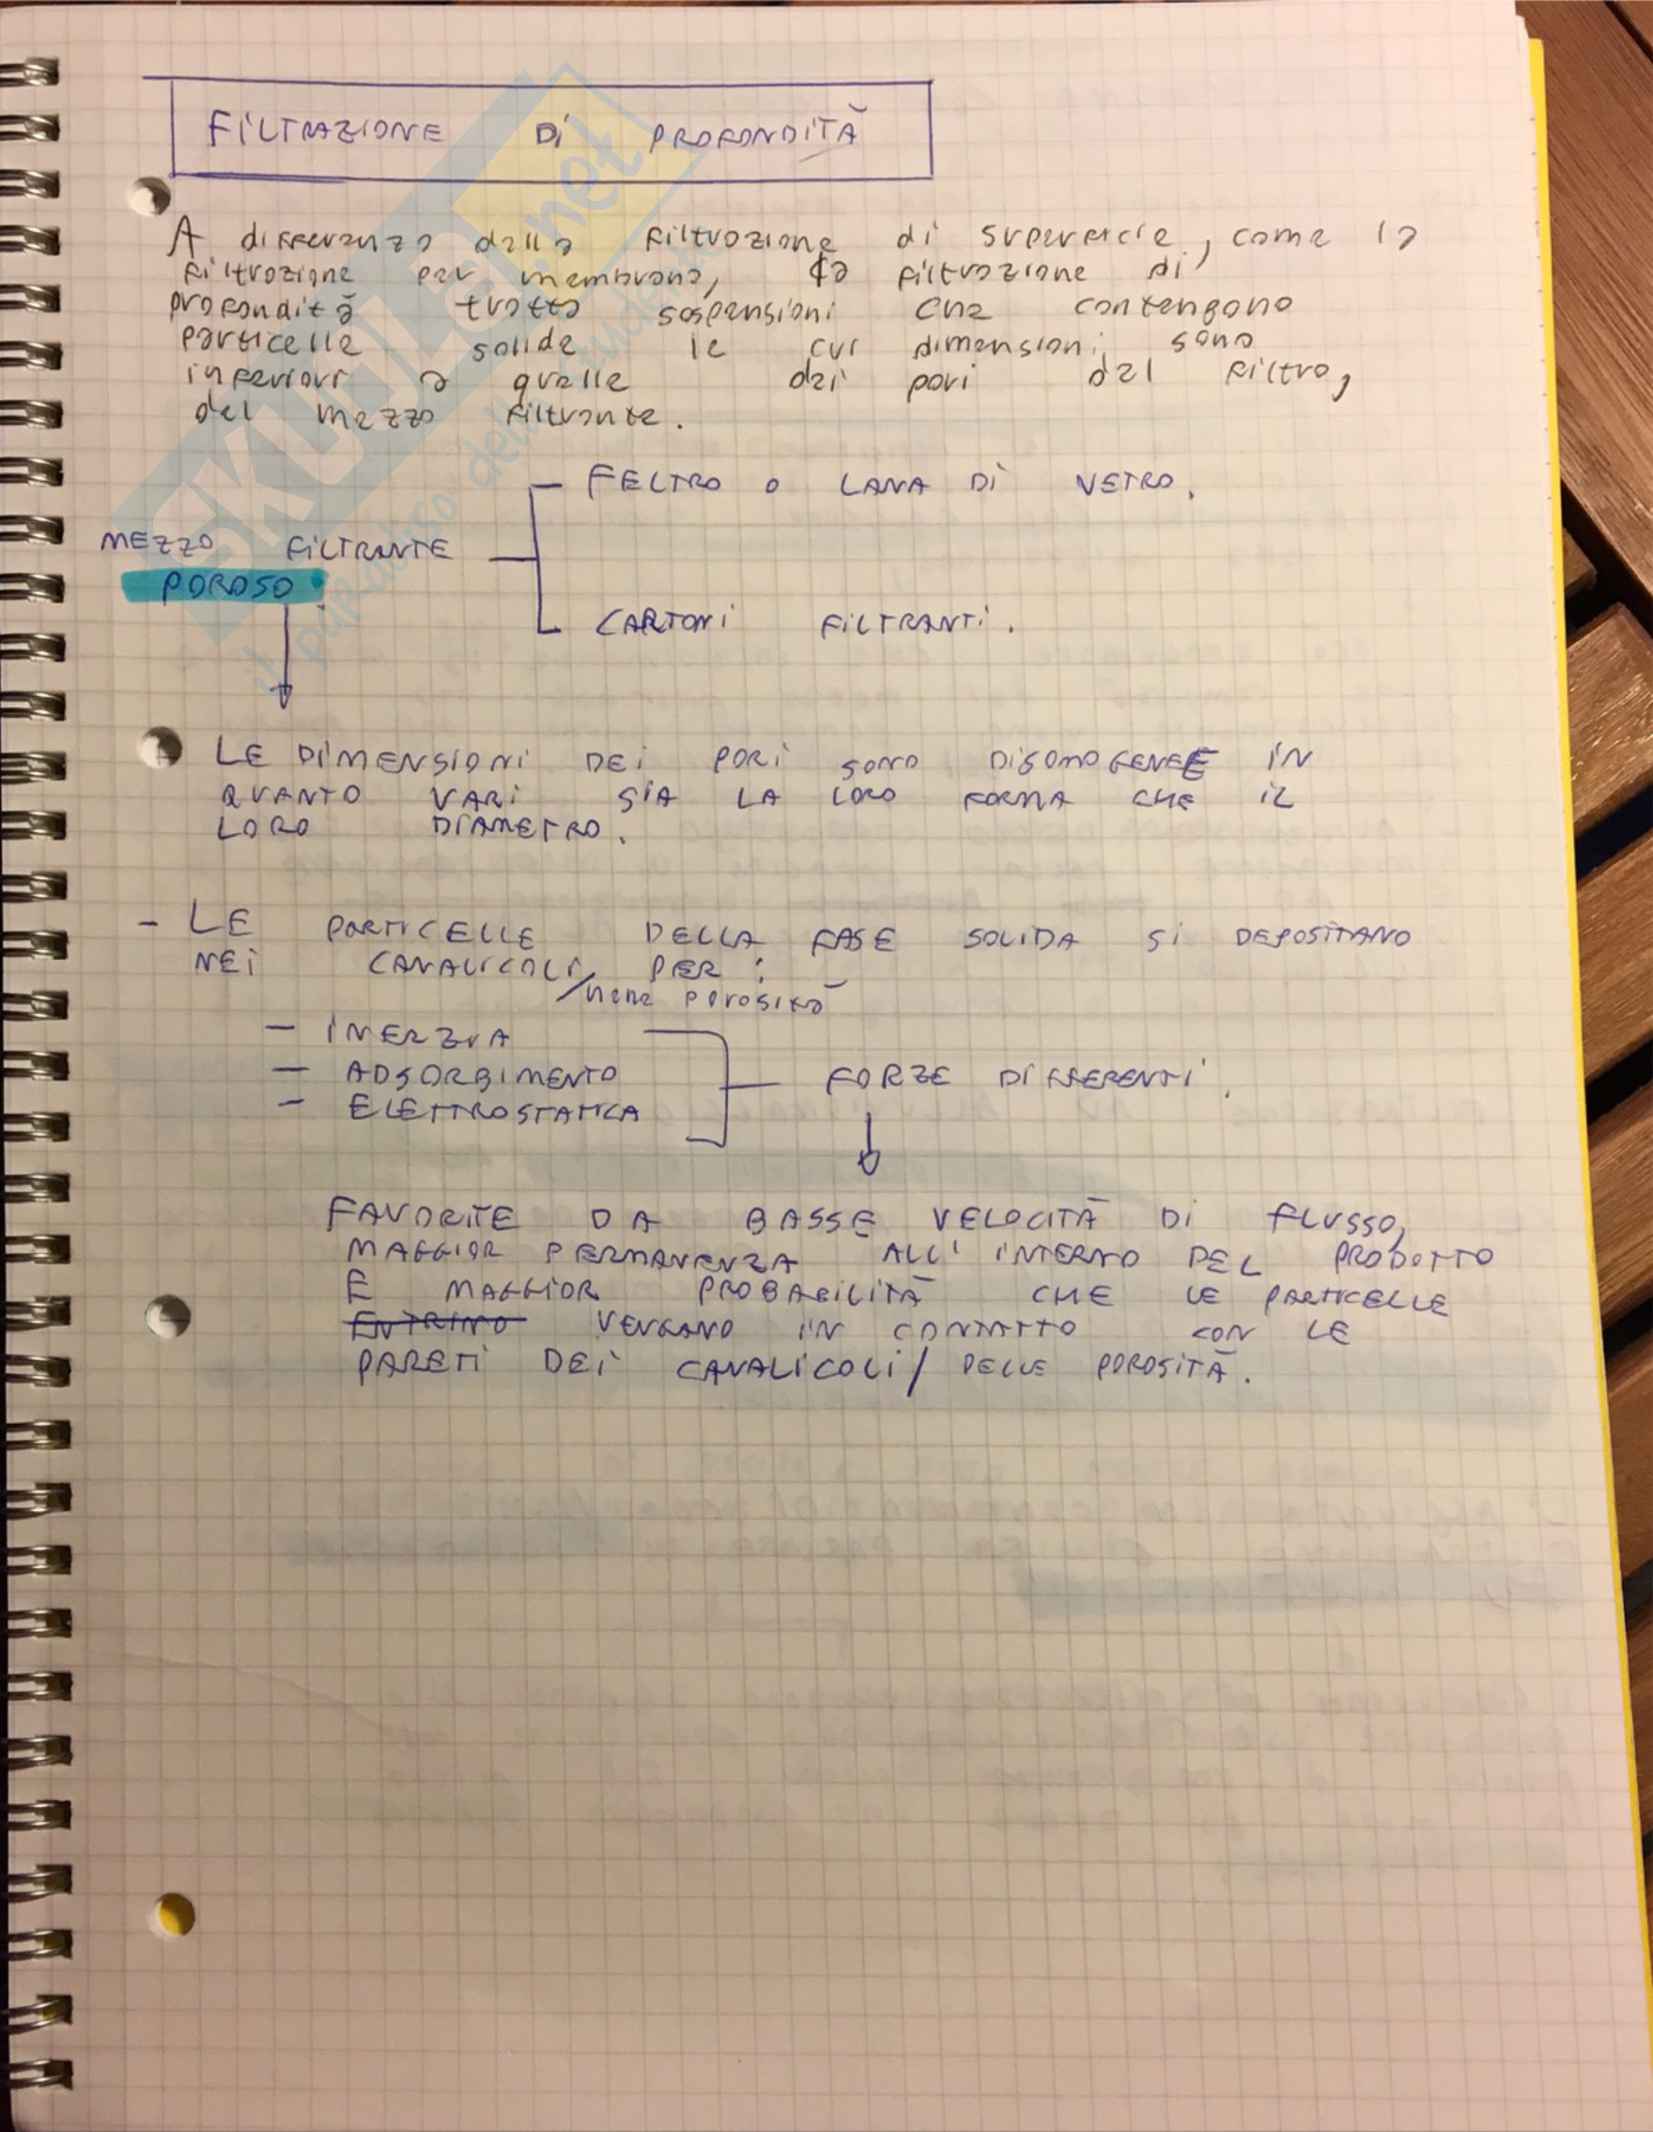 FILTRAZIONE DI PROFONDITÀ
A differenza della filtrazione di superficie, come la
filtrazione per membrana, la filtrazione di
profondità tratta sospensioni che contengono
particelle solide le cui dimensioni sono
inferiori a quelle dei pori del filtro,
del mezzo filtrante.
- FELTRO O LANA DI VETRO.
MEZZO FILTRANTE
POROSO
CARTONI FILTRANTI.
LE DIMENSIONI DEI PORI SONO DISOMOGENEE IN
QUANTO VARI SIA LA LORO FORMA CHE IL
LORO DIAMETRO.
- LE PARTICELLE DELLA FASE SOLIDA SI DEPOSITANO
NEI CANALICOLI PER:
/nene porosità
- INERZIA
- ADSORBIMENTO
- ELETTROSTATICA
FORZE DIFFERENTI.
FAVORITE DA BASSE VELOCITÀ DI FLUSSO,
MAGGIOR PERMANENZA ALL'INTERNO DEL PRODOTTO
E MAGGIOR PROBABILITÀ CHE LE PARTICELLE
ENTRINO VENGANO IN CONTATTO CON LE
PARETI DEI CANALICOLI / DELLE POROSITÀ.
SKUOLA.net
il paradiso dello studente